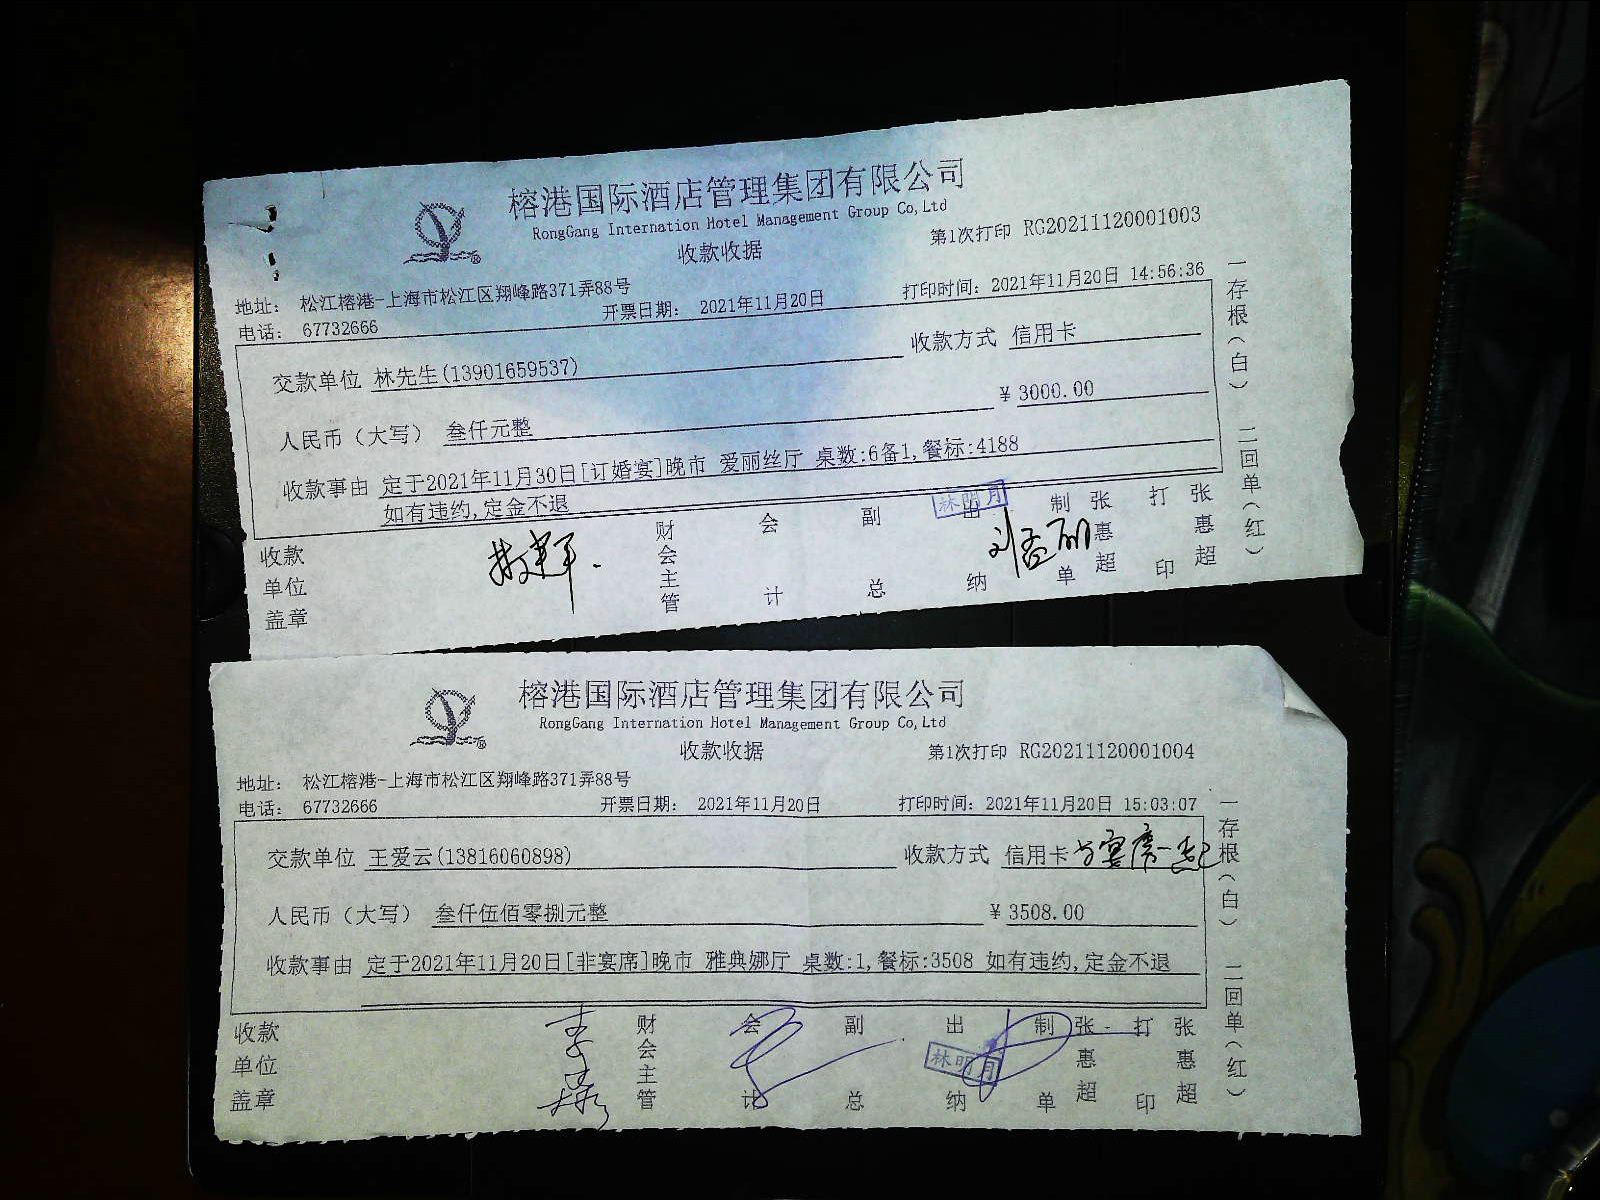 榕港国际酒店管理集团有限公司
RongGang Internation Hotel Management Group Co,Ltd
收款收据
第1次打印 RG20211120001003
地址： 松江榕港-上海市松江区翔峰路371弄88号
电话： 67732666 开票日期： 2021年11月20日 打印时间：2021年11月20日 14:56:36
交款单位 林先生(13901659537) 收款方式 信用卡
人民币（大写） 叁仟元整 ￥3000.00
收款事由 定于2021年11月30日[订婚宴]晚市 爱丽丝厅 桌数:6备1,餐标:4188
如有违约,定金不退
收款单位盖章 财会主管 会计 副总 出纳 林明月 制单 张惠超 打印 张惠超
一存根（白） 二回单（红）
榕港国际酒店管理集团有限公司
RongGang Internation Hotel Management Group Co,Ltd
收款收据
第1次打印 RG20211120001004
地址： 松江榕港-上海市松江区翔峰路371弄88号
电话： 67732666 开票日期： 2021年11月20日 打印时间：2021年11月20日 15:03:07
交款单位 王爱云(13816060898) 收款方式 信用卡
人民币（大写） 叁仟伍佰零捌元整 ￥3508.00
收款事由 定于2021年11月20日[非宴席]晚市 雅典娜厅 桌数:1,餐标:3508 如有违约,定金不退
收款单位盖章 财会主管 会计 副总 出纳 林明月 制单 张惠超 打印 张惠超
一存根（白） 二回单（红）